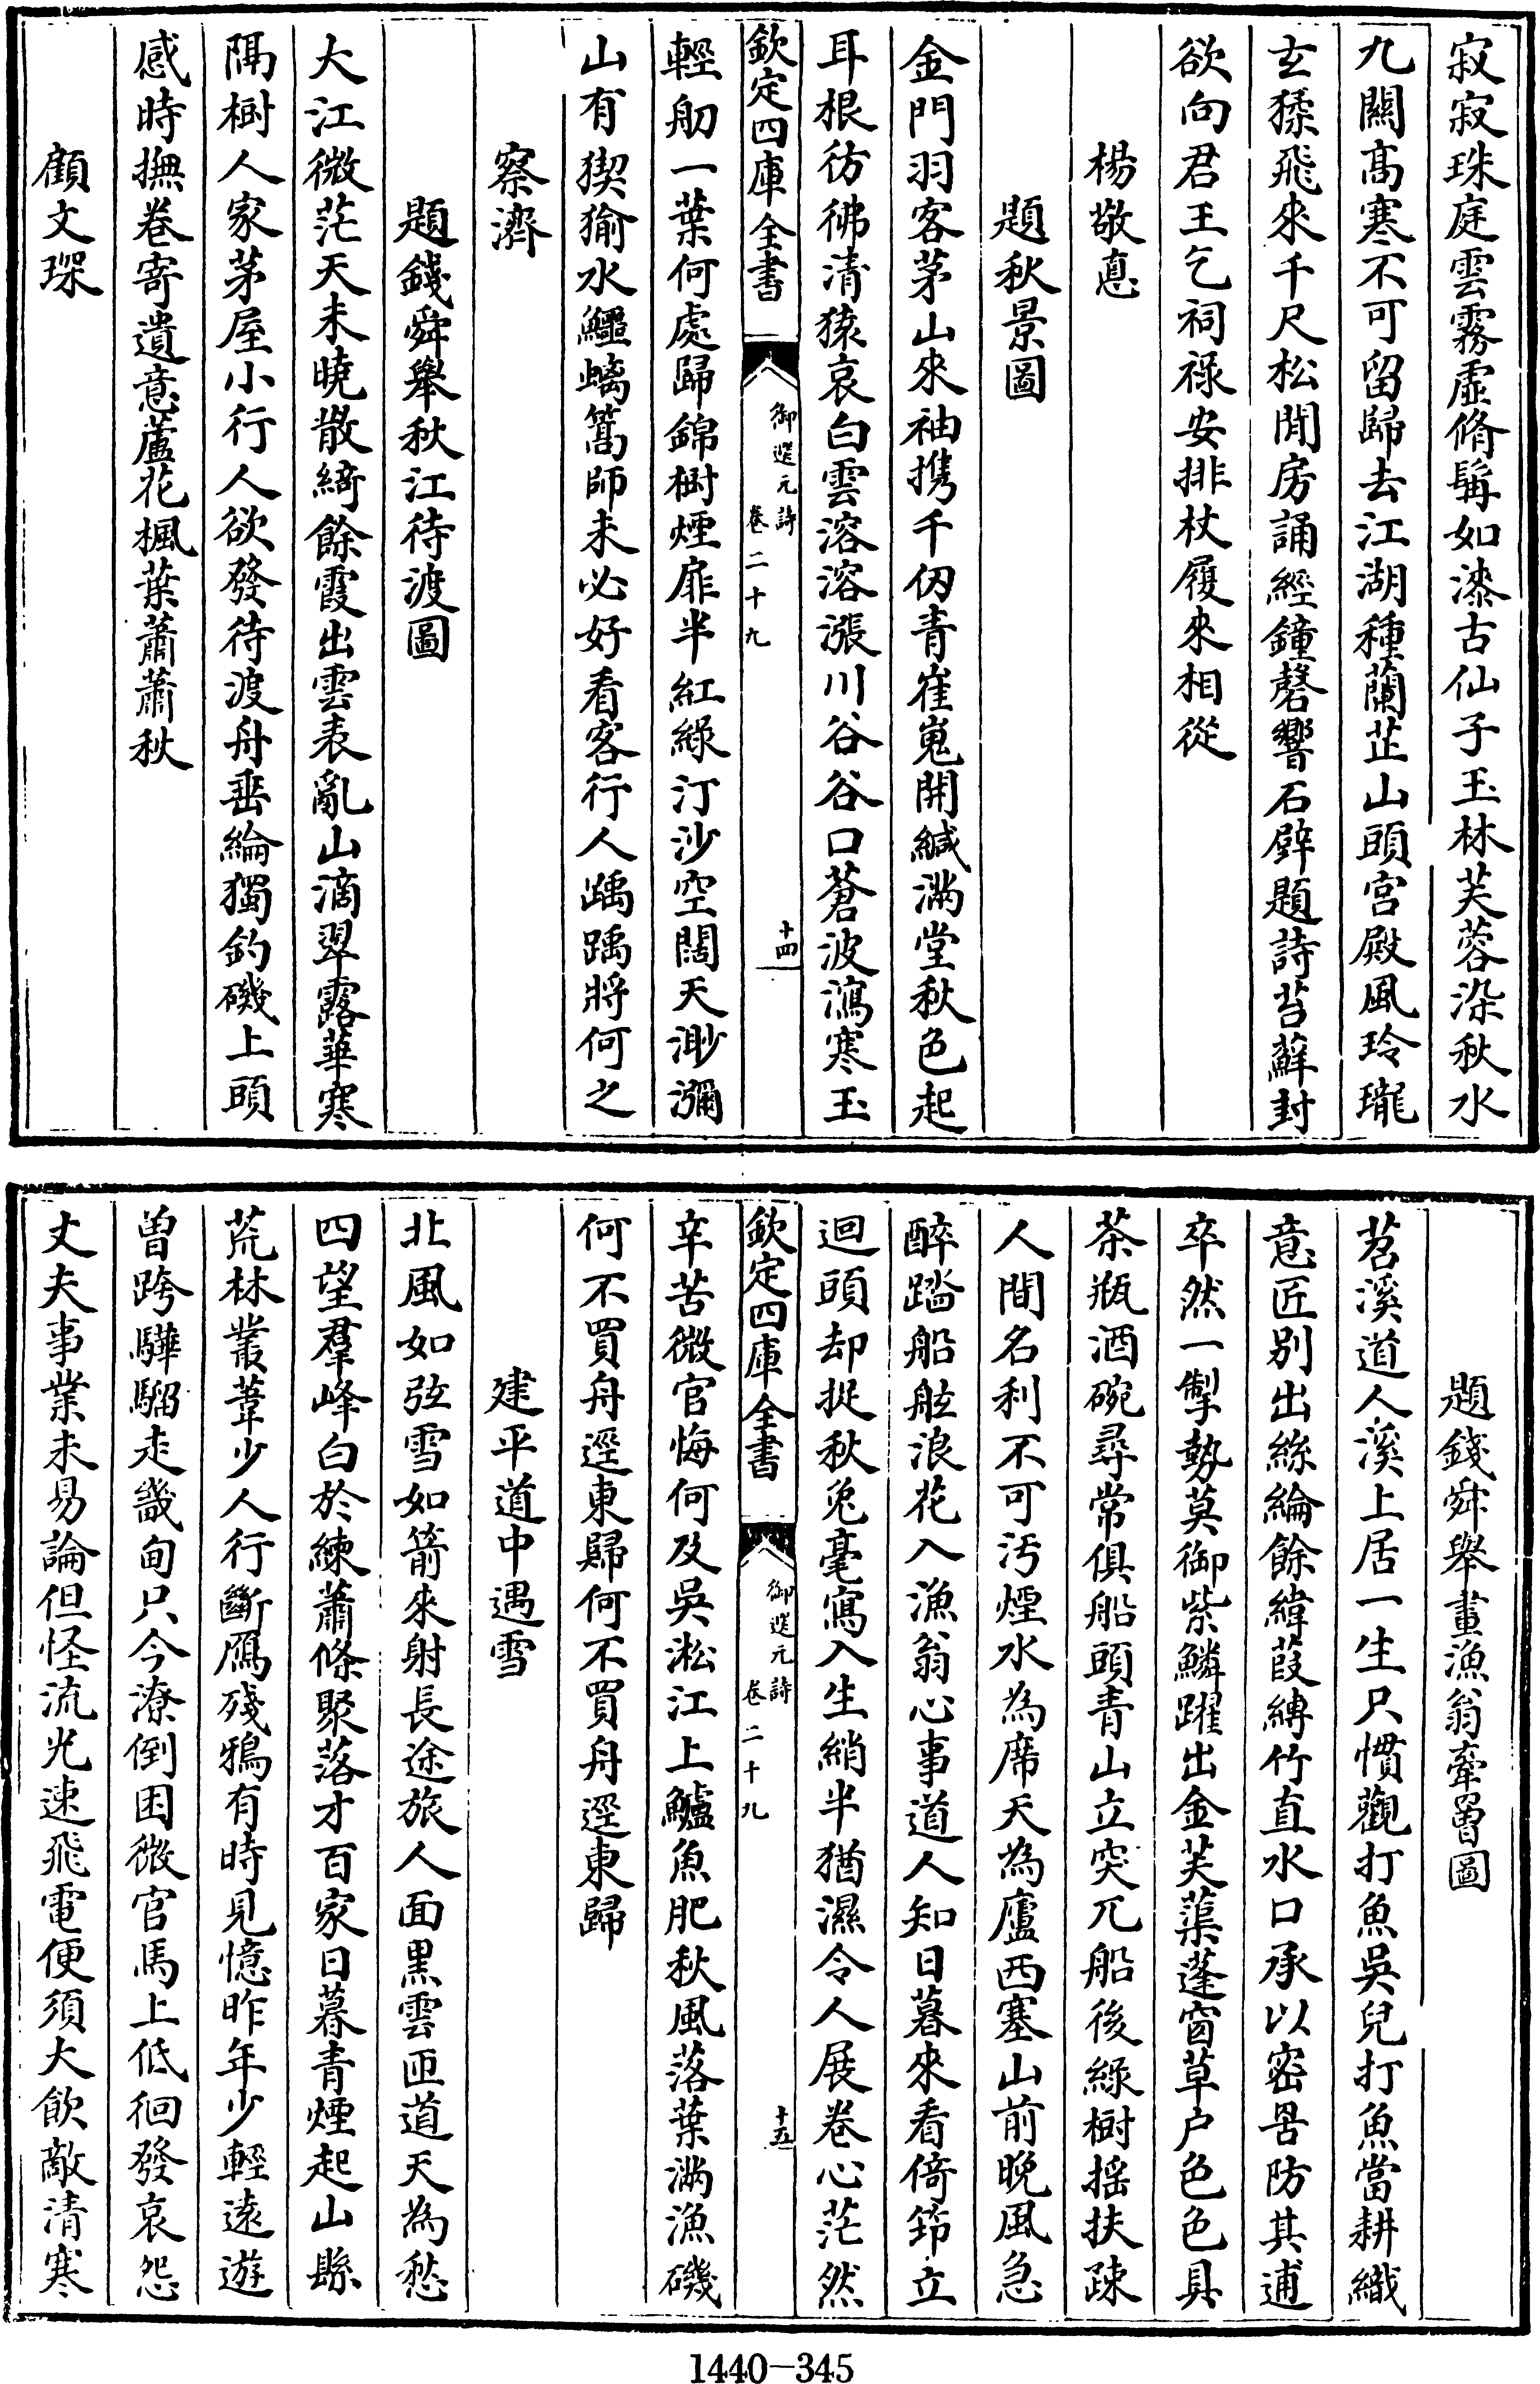 寂寂珠庭雲霧虛脩髯如漆古仙子玉林芙蓉染秋水
九關髙寒不可留歸去江湖種蘭芷山頭宫殿風玲瓏
玄猱飛來千尺松閒房誦經鐘磬響石壁題詩苔蘚封
欲向君王乞祠祿安排杖履來相從
楊敬悳
題秋景圖
金門羽客茅山來袖携千仞青崔嵬開緘滿堂秋色起
耳根彷彿清猿哀白雲溶溶漲川谷谷口蒼波瀉寒玉
欽定四庫全書
御選元詩
卷二十九
十四
輕舠一葉何處歸錦樹煙扉半紅綠汀沙空闊天渺瀰
山有猰㺄水鱷螭篙師未必好看客行人踽踽將何之
察濟
題錢舜舉秋江待渡圖
大江微茫天未曉散綺餘霞出雲表亂山滴翠露華寒
隔樹人家茅屋小行人欲發待渡舟垂綸獨釣磯上頭
感時撫卷寄遺意蘆花楓葉蕭蕭秋
顧文琛
題錢舜舉畫漁翁牽罾圖
苕溪道人溪上居一生只慣觀打魚吳兒打魚當耕織
意匠别出絲綸餘緯葭縛竹直水口承以密罟防其逋
卒然一掣勢莫御紫鱗躍出金芙蕖蓬窗草户色色具
茶瓶酒碗尋常俱船頭青山立突兀船後綠樹揺扶疎
人間名利不可汚煙水為席天為廬西塞山前晚風急
醉踏船舷浪花入漁翁心事道人知日暮來看倚笻立
迴頭却捉秋兔毫寫入生綃半猶濕令人展卷心茫然
欽定四庫全書
御選元詩
卷二十九
十五
辛苦微官悔何及吳淞江上鱸魚肥秋風落葉滿漁磯
何不買舟逕東歸何不買舟逕東歸
建平道中遇雪
北風如弦雪如箭來射長途旅人面黒雲匝道天為愁
四望羣峰白於練蕭條聚落才百家日暮青煙起山縣
荒林叢葦少人行斷鴈殘鴉有時見憶昨年少輕逺遊
曽跨驊騮走畿甸只今潦倒困微官馬上低徊發哀怨
丈夫事業未易論但怪流光速飛電便須大飲敵清寒
1440-345